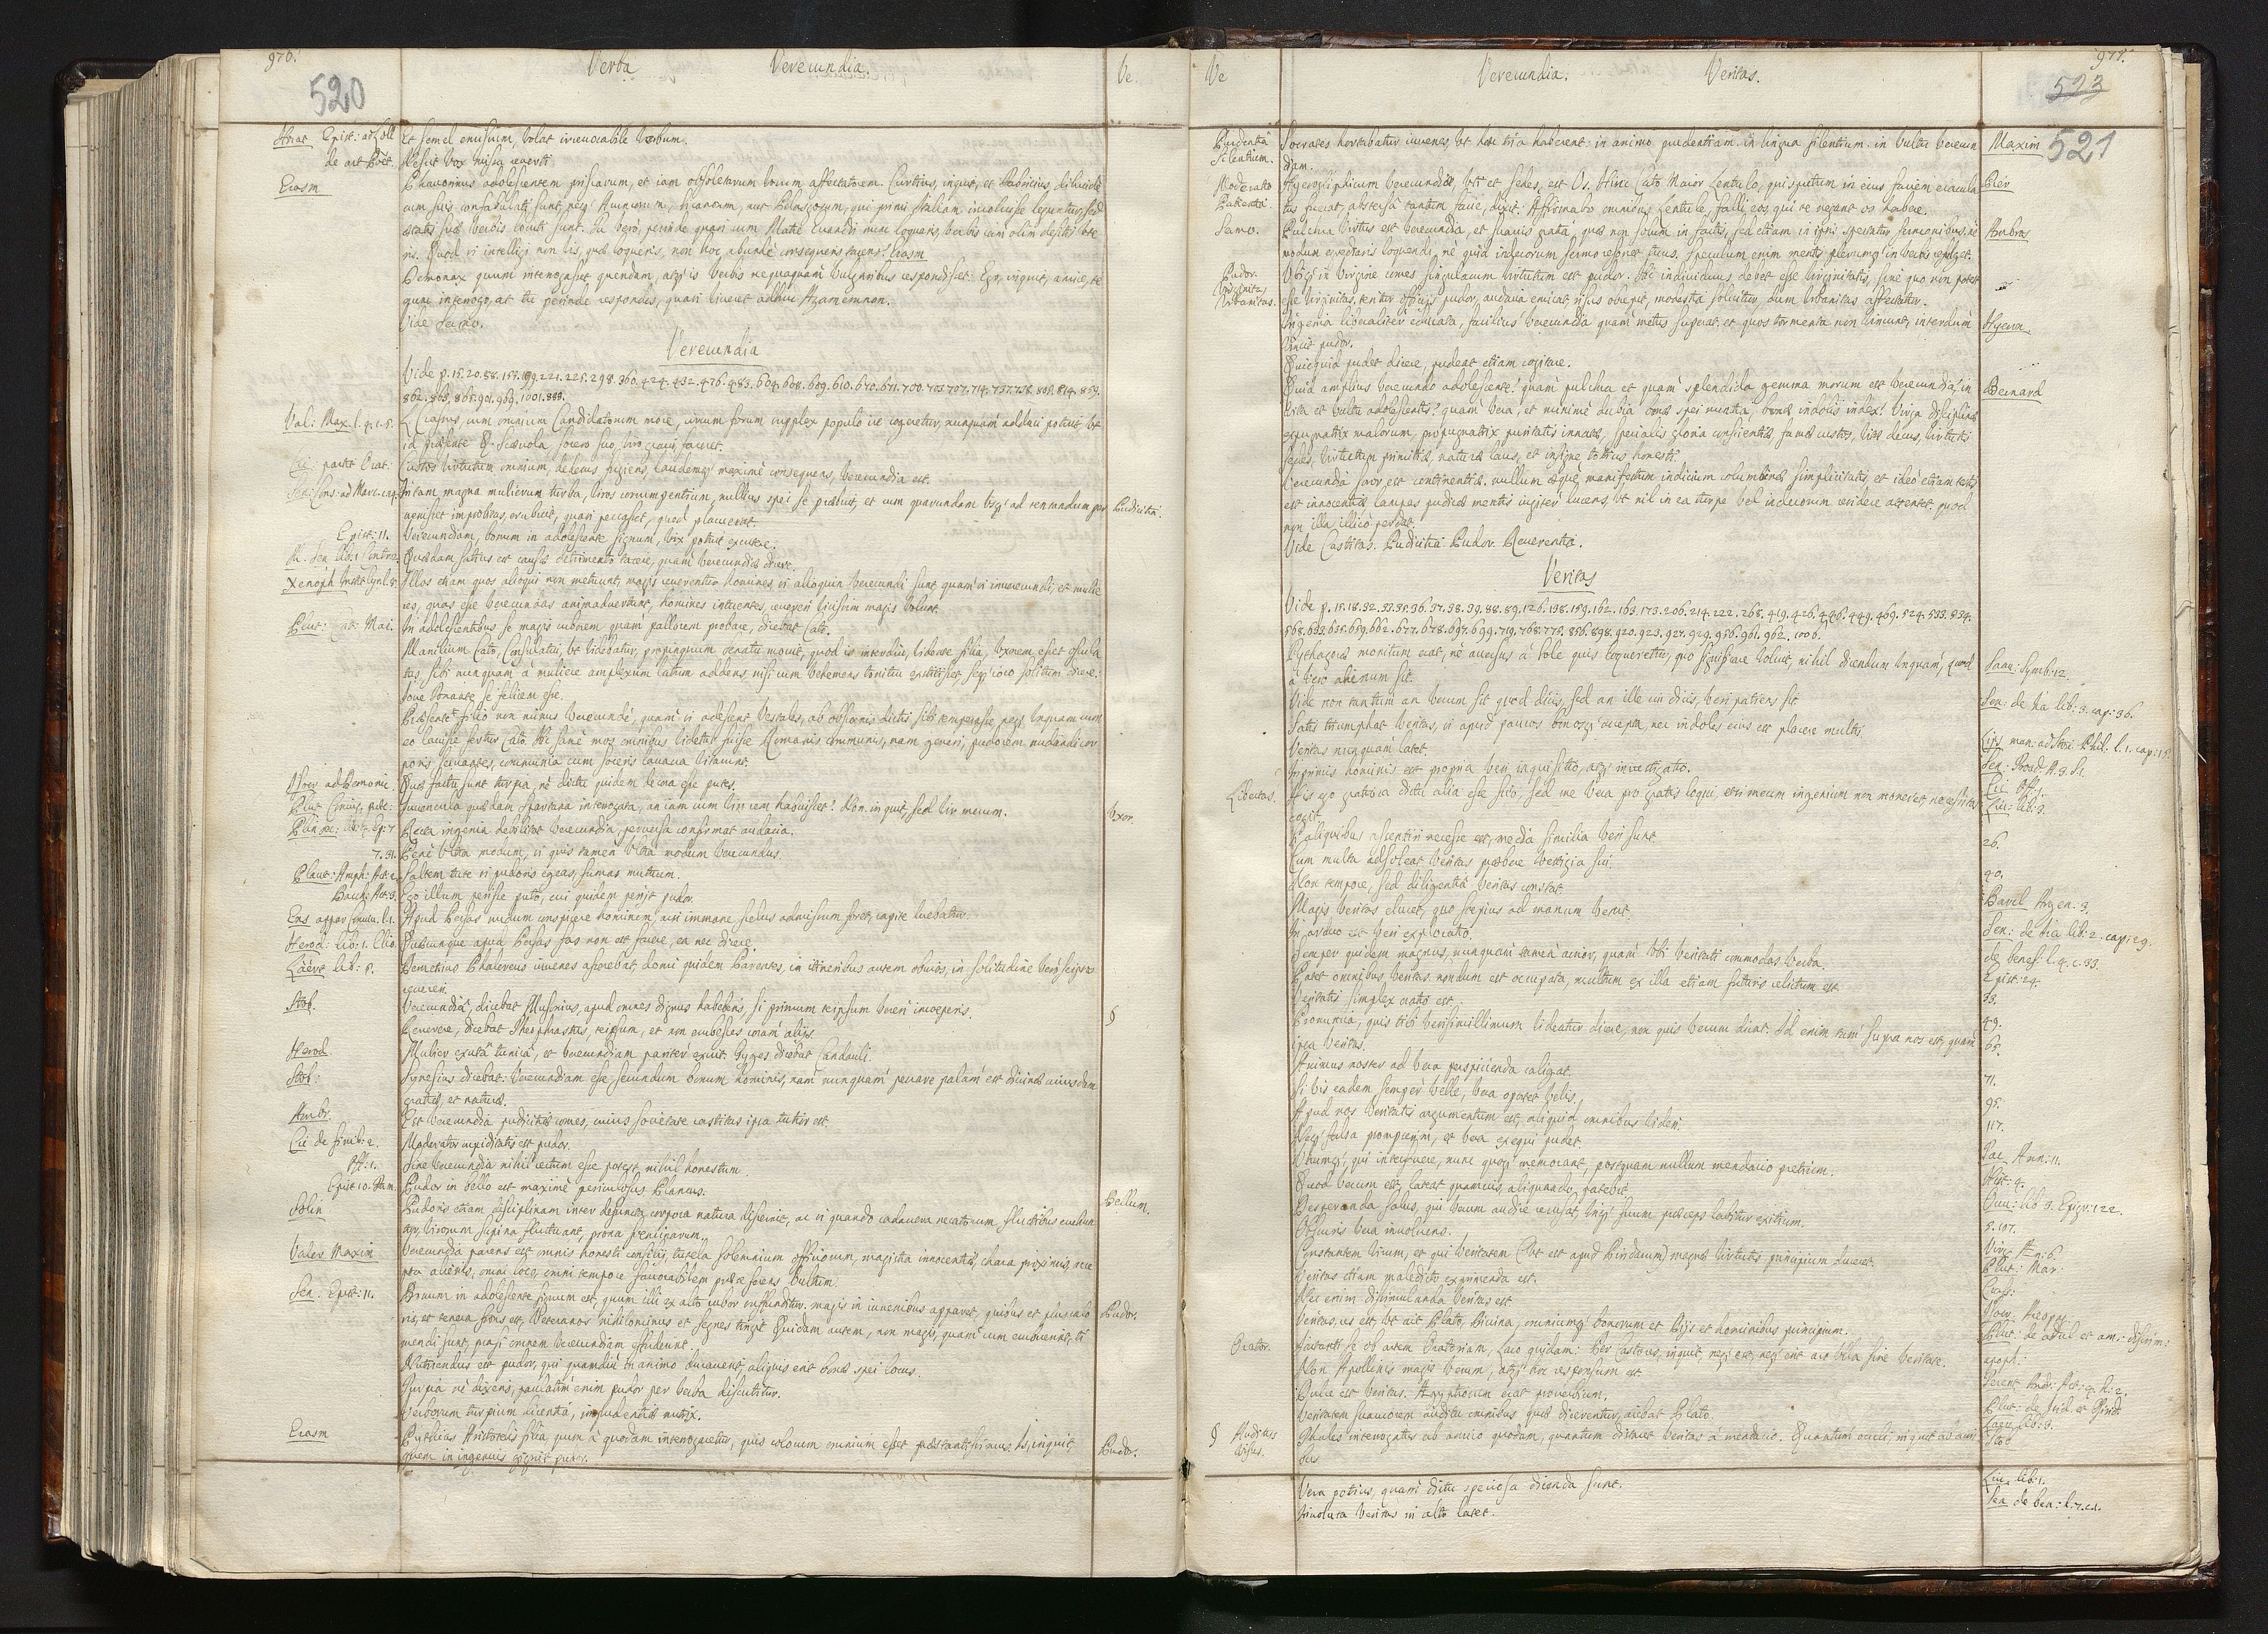 976.
Verba Verecundia. Ve.
520
Horat Epist: ad Loll Et semel emissum, volat irrevocabile Verbum.
de art Poet. Nescit vox missa reverti.
Erasm Phavorinus adolescentem priscarum, et iam obsoletarum vocum affectatorem. Curtius, inquit, et Fabricius, dilucidè
cum suis confabulati sunt, neq Auruncorum, Sicanorum, aut Pelascorum, qui primi Italiam incoluisse leguntur, sed
ætatis suæ verbis locuti sunt. Tu verò, perinde quasi cum Matre Evandri nunc loquens, verbis iam olim desitis ute
ris. Quod si intelligi non vis, quæ loqueris, non hoc abundè consequeris tacens? Erasm
Demonax quum interrogasset quendam, atq is verbis nequaquam vulgaribus respondisset: Ego, inquit, amice, te
nunc interrogo, at tu perinde respondes, quasi vivent adhuc Agamemnon.
Vide Sermo.
Verecundia
Vide p. 15. 20. 58. 157. 199. 221. 225. 298. 360. 424. 432. 476. 483. 604. 608. 609. 610. 670. 671. 700. 703. 707. 714. 737. 738. 805. 814. 859.
862. 863. 865. 901. 963. 1001. 888.
Val: Max. l. 4. c. 5. L Crassus cum omnium Candidatorum more, circum forum supplex populo ire cogeretur, nunquam adduci potuit, ut
id præsente Q. Scævola, socero suo, viro gravi, faceret.
Cic: partit Orat. Custos virtutum omnium, dedecus fugiens, laudemq maximè consequens, verecundia est.
Sen: Cons: ad Marc. cap. Intam magna mulierum turba, viros corrumpentium, nullius spei se præbuit, et cum quarundam usq ad tentandum per
venisset improbitas, erubuit, quasi peccasset, quod placuerat. Pudicitia.
Epist: 11. Verecundiam, bonum in adolescente signum, vix potuit excutere.
M. Sen lib: 1 Contro. Quædam satius est causæ detrimento tacere, quam verecundiæ dicere.
Xenoph Instit Cyri l. 8. Illos etiam quos alioqui non metuunt, magis reverentur homines, si alioquin verecundi sunt, quam si inverecundi, et mulie
res, quas esse verecundas animadvertunt, homines intuentes, revereri vicissim magis volunt.
Plut: Cat: Mai. In adolescentibus se magis ruborem quam pallorem probare, dicebat Cato.
Manilium Cato, Consulatu, ut videbatur, propinquum senatu movit, quod is interdiu, vidente filia, uxorem esset oscula
tus, sibi nunquam à muliere amplexum latum addens, nisi cum vehemens tonitru extitisset, seq ioco solitum dicere:
Iove tonante se felicem esse.
Præsente filio non minus verecundè, quam si adessent Vestales, ab obscœnis dictis sibi temperasse, neq unquam cum
eo lavisse fertur Cato. Hic sanè mos omnibus videtur fuisse Romanis communis, nam generi, pudorem nudandi cor
poris servantes, communia cum soceris lavacra vitarunt.
Isocr ad Demoni. Quæ factu sunt turpia, ne dictu quidem decora esse putes.
Plut Coniug. præc: Iuvencula quædam Spartana interrogata, an iam cum viro rem habuisset? Non, inquit, sed vir mecum. Uxor.
Plin ec: lib: 4. Ep: 7 Recta ingenia debilitat verecundia, perversa confirmat audacia.
7. 31. Benè ultra modum, si quis tamen ultra modum verecundus.
Plaut: Amph: Act: 2. Saltem tute si pudoris egeas, sumas mutuum.
Bacch: Act: 3. Ego illum periisse puto, cui quidem perijt pudor.
Ens appar simula. l. 1. Apud Persas nudum conspicere hominem, nisi immane scelus admissum foret, capite luebatur.
Herod: lib: 1. Clio. Quæcunque apud Persas fas non est facere, ea nec dicere.
Laërt lib: 5. Demetrius Phalereus iuvenes asserebat, domi quidem Parentes, in itineribus autem obvios, in solitudine verò seipsos
revereri.
Stob. Verecundia, dicebat Musonius, apud omnes dignus habeberis, si primum teipsum vereri inceperis. §
Reverere, dicebat Theophrastus, teipsum, et non erubesces coram alijs.
Herod Mulier exuta tunica, et verecundiam pariter exuit. Gyges dicebat Candauli.
Stob: Synesius dicebat: Verecundiam esse secundum bonum hominis, nam nunquam peccare palam est divinæ cuiusdam
gratiæ, et naturæ.
Ambr. Est verecundia pudicitiæ comes, cuius societate castitas ipsa tutior est.
Cic de finib: 2. Moderator cupiditatis est pudor.
Off: 1. Sine verecundia nihil rectum esse potest, nihil honestum.
Epist 10. Fam. Pudor in bello est maximè periculosus Plancus. Bellum.
Solin Pudoris etiam disciplinam inter defuncta corpora natura discrevit, ac si quando cadavera necatorum fluctibus evehun
tur, virorum supina fluctuant, prona feminarum.
Valer Maxim Verecundia parens est omnis honesti consilij, tutela solemnium officiorum, magistra innocentiæ, chara proximis, acce
pta alienis, omni loco, omni tempore favorabilem præ se ferens vultum.
Sen: Epist: 11. Bonum in adolescente signum est, quum illi ex alto rubor suffunditur. magis in iuvenibus apparet, quibus et plus calo
ris, et tenera frons est, Veteranos nihilominus et segnes tingit. Quidam autem, non magis, quam cum erubuerint, ti Pudor.
mendi sunt, quasi omnem verecundiam effuderint.
Nutriendus est pudor, qui quamdiu in animo duraverit, aliquis erit bonæ spei locus.
Turpia ne dixeris, paulatim enim pudor per verba discutitur.
Verborum turpium licentia, impudentiæ nutrix.
Erasm Pythias Aristotelis filia quum à quodam interrogaretur, quis colorum omnium esset præstantissimus Is, inquit, Pudor.
quem in ingenuis gignit pudor.
977.
Ve Verecundia. Veritas.
523
521
Prudentia Silentium. Socrates hortabatur iuvenes, ut hæc tria haberent: in animo prudentiam. in lingua silentium. in vultu verecun Maxim
diam.
Moderatio Patientia. Hyeroglificum verecundiæ, uti et sedes, est Os. Hinc Cato Maior Lentulo, qui sputum in eius faciem eiacula Pier
tus fuerat, abstersa tantum facie, dixit: Affirmabo omnibus Lentule, falli eos qui te negant os habere.
Sermo. Pulchra virtus est verecundia, et suavis gratia, quæ non solum in factis, sed etiam in ipsis spectatur sermonibus, ne Ambros
modum excedaris loquendi, ne quid indecorum sermo resonet tuus. speculum enim mentis plerumq in verbis refulget.
Pudor. Virginitas Urbanitas. Usq in Virgine comes singularum virtutum est pudor. Hic individuus debet esse virginitatis, sine quo non potest
esse virginitas. teritur effugit pudor, audacia emicat, risus obrepit, modestia solvitur, dum urbanitas affectatur.
Ingenia liberaliter educata, facilius verecundia quam metus superat. et quos tormenta non vincunt, interdum Hyeron.
vincit pudor.
Quicquid pudet dicere, pudeat etiam cogitare.
Quid amplius verecundo adolescente! quam pulchra et quam splendida gemma morum est verecundia, in Bernard
vita et vultu adolescentis? quam vera, et minimè dubia bonæ spei nuntia, bonæ indolis index! Virga disciplinæ
expugnatrix malorum, propugnatrix puritatis innatæ, specialis gloria conscientiæ, famæ custos, vitæ decus, virtutis
sedes, virtutum primitiæ, naturæ laus, et insigne totius honesti.
Verecundia soror est continentiæ. nullum æquè manifestum indicium columbinæ simplicitatis, et ideò etiam testis
est innocentiæ, lampas pudicæ mentis iugiter lucens, ut nil in ea turpe vel indecorum residere attentet. quod
non illa illicò perdat.
Vide Castitas. Pudicitia. Pudor. Reverentia.
Veritas
Vide p. 15. 18. 32. 33. 35. 36. 37. 38. 39. 88. 89. 126. 138. 159. 162. 163. 173. 206. 214. 222. 268. 419. 426. 446. 449. 469. 524. 533. 534.
568. 633. 635. 659. 662. 677. 678. 697. 699. 719. 768. 775. 856. 898. 920. 923. 927. 929. 956. 961. 962. 1006.
Pythagoræ monitum erat, ne aversus à Sole quis loqueretur, quo significare voluit, nihil dicendum unquam, quod Laer: Symb: 12.
à vero alienum sit.
Vide non tantum an verum sit quod dicis, sed an ille cui dicis, veri patiens sit. Sen: de ira lib: 3. cap: 36.
Satis triumphat veritas, si apud paucos bonosq accepta, nec indoles eius est placere multis. Lips man: ad Stoi: Phil. l. 1. cap: 18.
Veritas nunquam latet. Sen: Troad: A. 3. S 1.
Inprimis hominis est propria veri inquisitio, atq investigatio. Cic Off 1.
Libertas. His ego gratiora dictu alia esse scio, sed me vera pro gratis loqui, etsi meum ingenium non moneret, necessitas Livi: lib: 3.
cogit.
Si aliquibus assentiri necesse est, media similia veri sunt. 26.
Cum multa adsoleat veritas præbere vestigia sui. 40.
Non tempore, sed diligentia veritas constat.
Magis veritas elucet, quo sæpius ad manum venit. Barcl Argen: 3.
In arduo est veri exploratio. Sen: de ira lib: 2. cap: 29.
Semper quidem magnus, nunquam tamen acrior, quam ubi veritati commodas verba. de benef: l. 4. c. 33.
Patet omnibus veritas. nondum est occupata, multum ex illa etiam futuris relictum est. Epist: 24.
Veritatis simplex oratio est. 33.
Pronuncia, quis tibi verisimillimum videatur dicere, non quis verum dicat. Id enim tam supra nos est, quam 49.
ipsa veritas. 65.
Animus noster ad vera perspicienda caligat.
Si vis eadem semper velle, vera oportet velis. 71.
Apud nos veritatis argumentum est, aliquid omnibus videri. 95.
Neq falsa promptum, et vera exequi pudet. 117.
Utrumq, qui interfuere, nunc quoq memorant, postquam nullum mendacio pretium. Tac Ann: 11.
Quod verum est, lateat quamvis, aliquando patebit. Hist: 4.
Desperanda salus, qui verum audire recusat, Inq suum præceps labitur exitium. Owen: lib 3. Epigr: 122.
Obscuris vera involvens. 5. 107.
Constantem virum, et qui veritatem (ut est apud Pindarum) magnæ virtutis principium duceret. Virg Æn: 6.
Veritas etiam maledictis exprimenda est. Plut: Mar:
Nec enim dissimulanda veritas est. Crass:
Veritas, res est, ut ait Plato, Divina, omniumq bonorum et Dijs et hominibus principium. Isocr. Areopg.
Orator. Iactanti se ob artem Oratoriam, Laco quidam: Per Castores, inquit, neq est, neq erit ars ulla sine veritate. Plut: de adul et am: discrim: apoph:
Non Apollinis magis verum, atq hoc responsum est. Terent And: Act: 4. S: 2.
Dulce est veritas. Aegyptiorum erat proverbium. Plut: de Isid: et Osirid.
Veritatem suaviorem auditu omnibus quæ dicerentur, aiebat Plato. Laer lib: 3.
§ Auditus Visus. Thales interrogatus ab amico quodam, quantum distaret veritas à mendacio. Quantum oculi, inquit ab auri Stob
bus.
Vera potius, quam dictu speciosa dicenda sunt. Liv. lib: 1.
Involuta veritas in alto latet. Sen de ben: l: 7. c. 1.